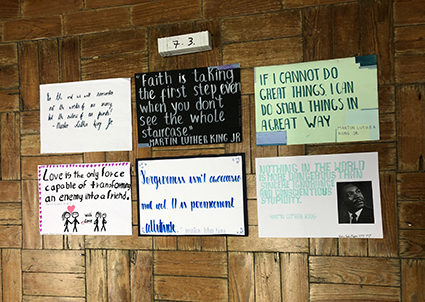 7. 3.
In the end we will remember
not the words of our enemy
but the silence of our friends"
- Martin Luther King Jr.
"Faith is taking
the first step even
when you don't
see the whole
staircase"
- MARTIN LUTHER KING JR
IF I CANNOT DO
GREAT THINGS I CAN
DO SMALL THINGS IN
A GREAT WAY
MARTIN LUTHER
KING JR.
Love is the only force
capable of transforming
an enemy into a friend.
Forgiveness isn't
and it's a permanent
attitude.
NOTHING IN THE WORLD
IS MORE DANGEROUS THAN
SINCERE IGNORANCE
AND CONSCIENTIOUS
STUPIDITY.
MARTIN LUTHER KING